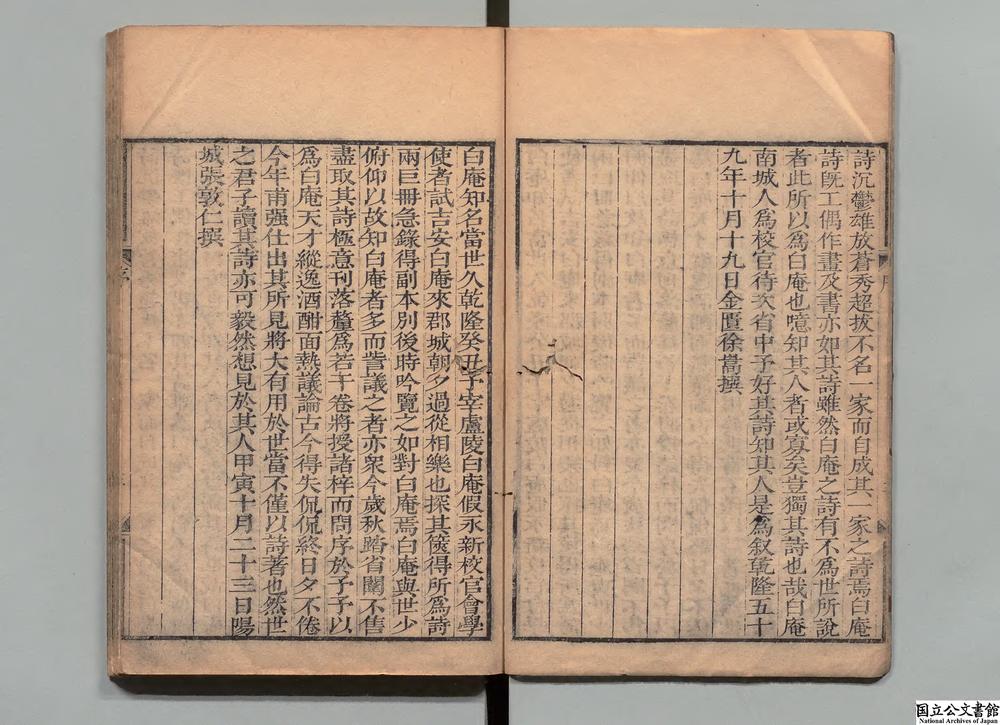 詩沉鬱雄放蒼秀超拔不名一家而自成其一家之詩焉白庵
詩旣工偶作畫及書亦如其詩雖然白庵之詩有不爲世所說
者此所以爲白庵也噫知其人者或寡矣豈獨其詩也哉白庵
南城人爲校官待次省中予好其詩知其人是爲叙乾隆五十
九年十月十九日金匱徐嵩撰
序
白庵知名當世久乾隆癸丑予宰盧陵白庵假永新校官會學
使者試吉安白庵來郡城朝夕過從相樂也探其篋得所爲詩
兩巨冊急錄得副本別後時吟覽之如對白庵焉白庵與世少
俯仰以故知白庵者多而訾議之者亦衆今歲秋踏省闈不售
盡取其詩極意刊落釐爲若干卷將授諸梓而問序於予予以
爲白庵天才縱逸酒酣面熱議論古今得失侃侃終日夕不倦
今年甫强仕出其所見將大有用於世當不僅以詩著也然世
之君子讀其詩亦可毅然想見於其人甲寅十月二十三日陽
城張敦仁撰
序
国立公文書館
National Archives of Japan